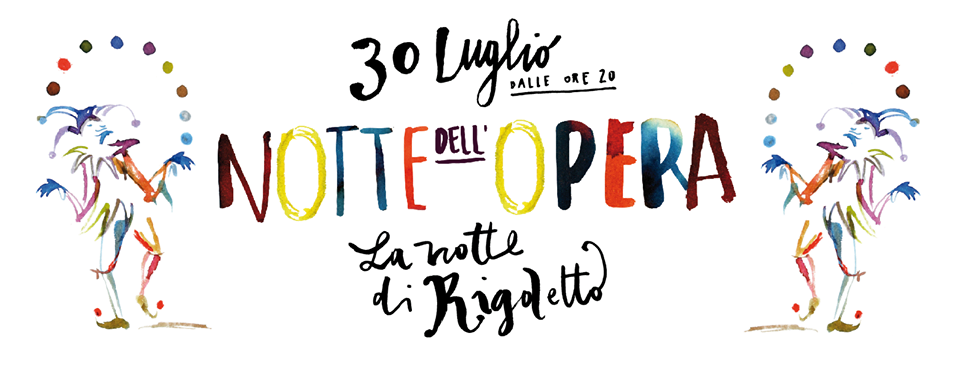 30 Luglio
DALLE ORE 20
NOTTE DELL' OPERA
La notte
di Rigoletto